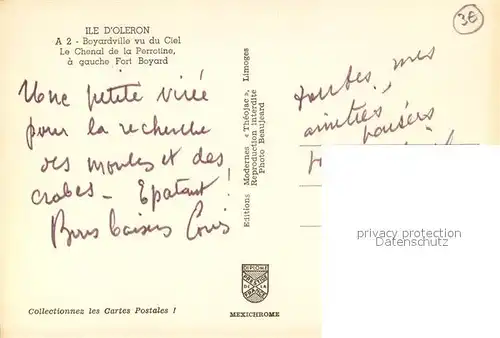 3€
ILE D'OLERON
A 2 - Boyardville vu du Ciel
Le Chenal de la Perrotine,
à gauche Fort Boyard
Une petite virée
pour la recherche
des moules et des
crabes - Epatant !
Bons baisers
Editions Modernes « Théojac », Limoges
Reproduction interdite
Photo Beaujeard
toutes mes
amitiés
privacy protection
Datenschutz
DIPLOME
PRESTIGE
DE LA
FRANCE
Collectionnez les Cartes Postales !
MEXICHROME